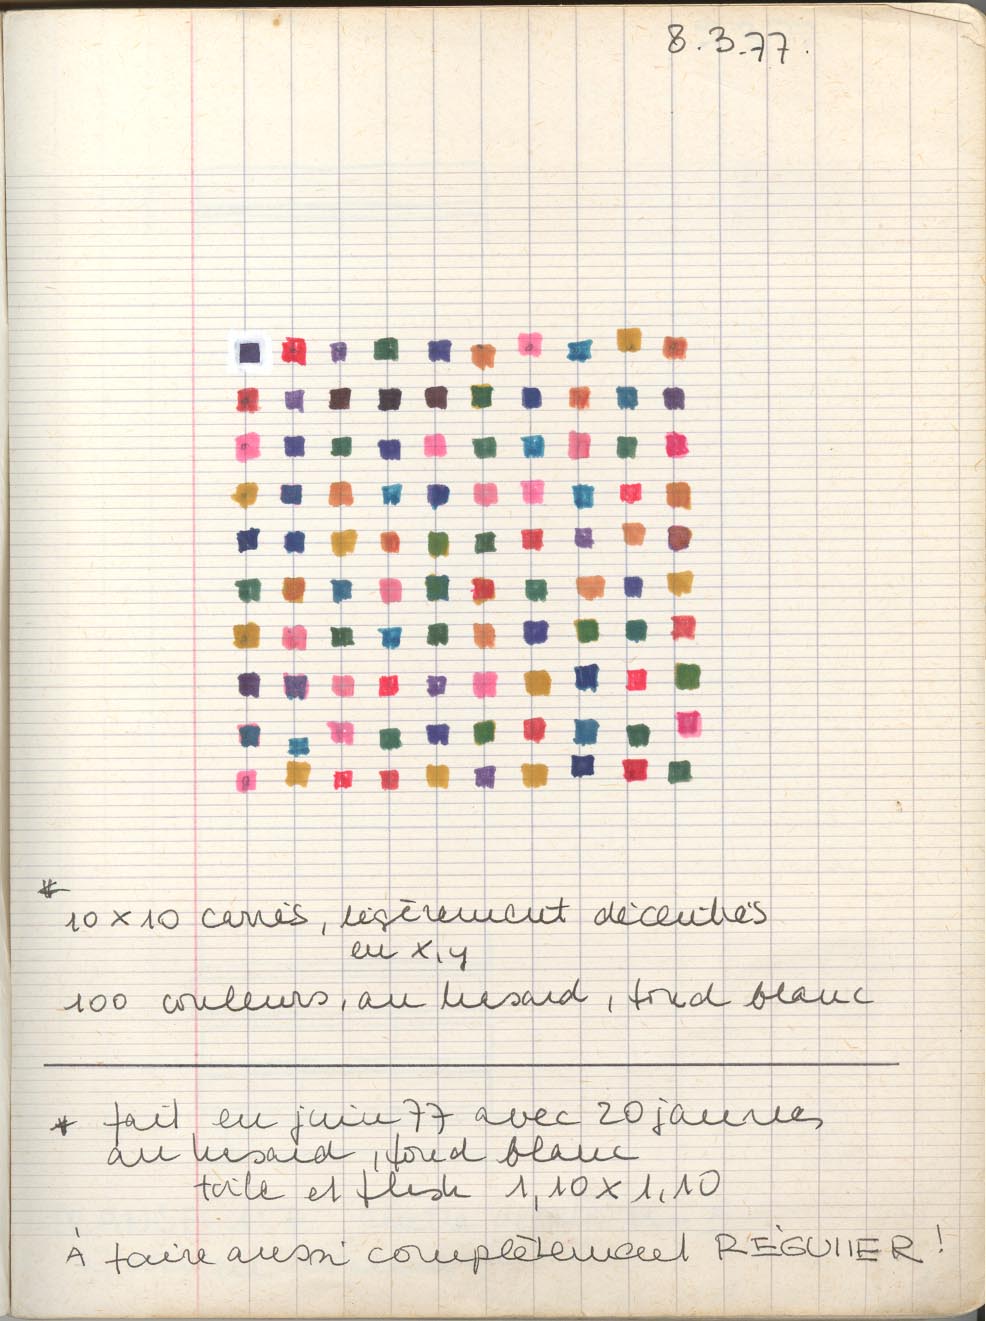 8.3.77.
* 10 x 10 carrés, légèrement décentrés
en x, y
100 couleurs, au hasard, fond blanc
* fait en juin 77 avec 20 jaunes
au hasard, fond blanc
toile et flash 1,10 x 1,10
À faire aussi complètement RÉGULIER !